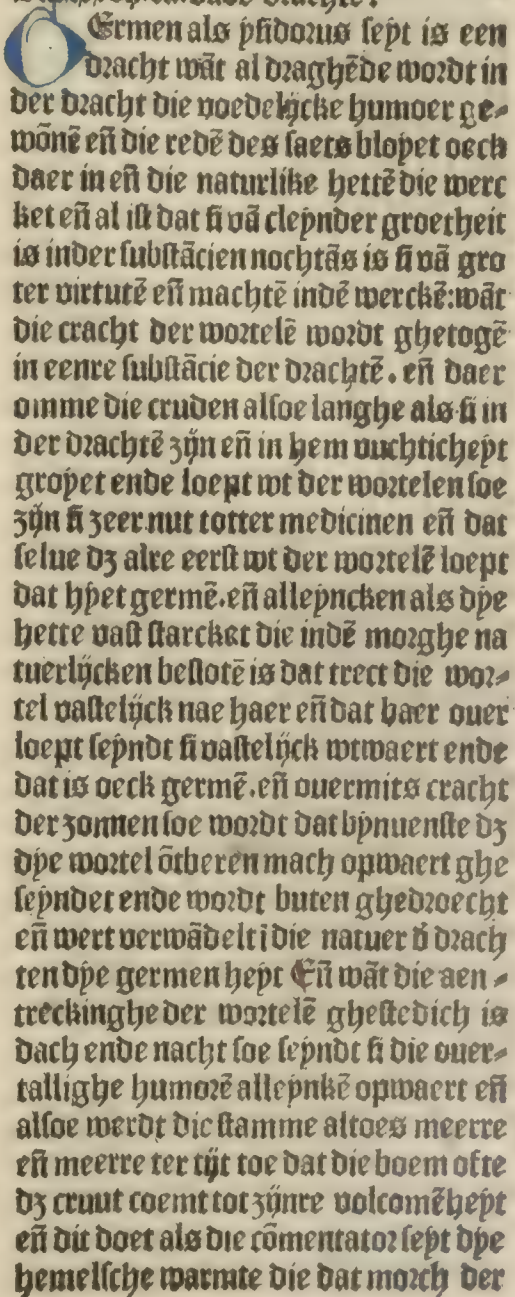 GErmen als ysidorus seyt is een
dracht wāt al draghēde wordt in
der dracht die voedelijcke humoer ge⸗
wōnē eñ die redē des saets blyoet oeck
daer in eñ die naturlike hettē die werc
ket eñ al ist dat si vā cleynder groetheit
is inder substācien nochtās is si vā gro
ter virtutē eñ machtē indē werckē: wāt
die cracht der wortelē wordt ghetogē
in eenre substācie der drachtē. eñ daer
omme die cruden alsoe langhe als si in
der drachtē zijn eñ in hem vuchticheyt
groyet ende loept wt der wortelen soe
zijn si zeer nut totter medicinen eñ dat
selue dz alre eerst wt der wortelē loept
dat hyet germē. eñ alleyncken als dye
hette vast starcket die indē morghe na
tuerlijcken beslotē is dat trect die wor⸗
tel vastelijck nae haer eñ dat haer ouer
loept seyndt si vastelijck wtwaert ende
dat is oeck germē. eñ ouermits cracht
der zonnen soe wordt dat bynnenste dz
dye wortel ōtberen mach opwaert ghe
seyndet ende wordt buten ghedroecht
eñ wert verwādelt i die natuer đ drach
ten dye germen heyt Eñ wāt die aen⸗
treckinghe der wortelē ghestedich is
dach ende nacht soe seyndt si die ouer⸗
tallighe humorē alleynkē opwaert eñ
alsoe werdt die stamme altoes meerre
eñ meerre ter tijt toe dat die boem ofte
dz cruut coemt tot zijnre volcomēheyt
eñ dit doet als die cōmentator seyt dye
hemelsche warmte die dat morch der